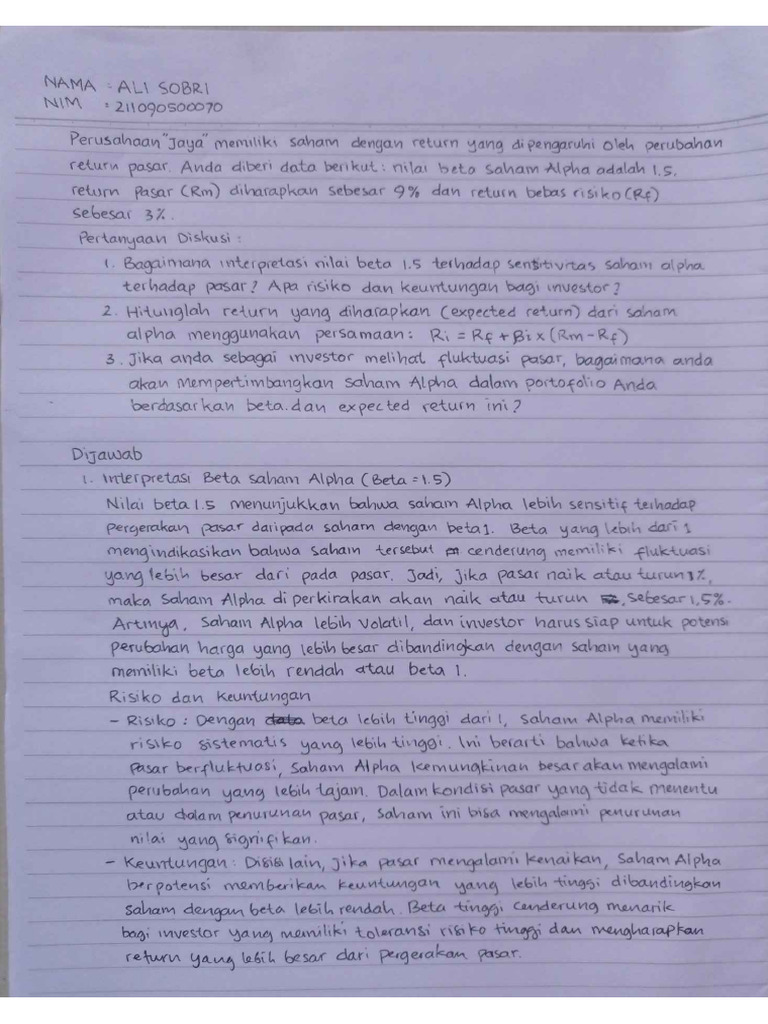 NAMA : ALI SOBRI
NIM : 211090500070
Perusahaan "Jaya" memiliki saham dengan return yang dipengaruhi oleh perubahan
return pasar. Anda diberi data berikut: nilai beta saham Alpha adalah 1.5.
return pasar (Rm) diharapkan sebesar 9% dan return bebas risiko (Rf)
sebesar 3%.
Pertanyaan Diskusi:
1. Bagaimana interpretasi nilai beta 1.5 terhadap sensitivitas saham alpha
terhadap pasar? Apa risiko dan keuntungan bagi investor?
2. Hitunglah return yang diharapkan (expected return) dari saham
alpha menggunakan persamaan: Ri = Rf + βi x (Rm - Rf)
3. Jika anda sebagai investor melihat fluktuasi pasar, bagaimana anda
akan mempertimbangkan saham Alpha dalam portofolio Anda
berdasarkan beta dan expected return ini?
Dijawab
1. Interpretasi Beta saham Alpha (Beta = 1.5)
Nilai beta 1.5 menunjukkan bahwa saham Alpha lebih sensitif terhadap
pergerakan pasar daripada saham dengan beta 1. Beta yang lebih dari 1
mengindikasikan bahwa saham tersebut cenderung memiliki fluktuasi
yang lebih besar dari pada pasar. Jadi, jika pasar naik atau turun 1%,
maka saham Alpha di perkirakan akan naik atau turun sebesar 1,5%.
Artinya, saham Alpha lebih volatil, dan investor harus siap untuk potensi
perubahan harga yang lebih besar dibandingkan dengan saham yang
memiliki beta lebih rendah atau beta 1.
Risiko dan Keuntungan
- Risiko : Dengan data beta lebih tinggi dari 1, saham Alpha memiliki
risiko sistematis yang lebih tinggi. Ini berarti bahwa ketika
pasar berfluktuasi, saham Alpha kemungkinan besar akan mengalami
perubahan yang lebih tajam. Dalam kondisi pasar yang tidak menentu
atau dalam penurunan pasar, saham ini bisa mengalami penurunan
nilai yang signifikan.
- Keuntungan : Disisi lain, jika pasar mengalami kenaikan, saham Alpha
berpotensi memberikan keuntungan yang lebih tinggi dibandingkan
saham dengan beta lebih rendah. Beta tinggi cenderung menarik
bagi investor yang memiliki toleransi risiko tinggi dan mengharapkan
return yang lebih besar dari pergerakan pasar.